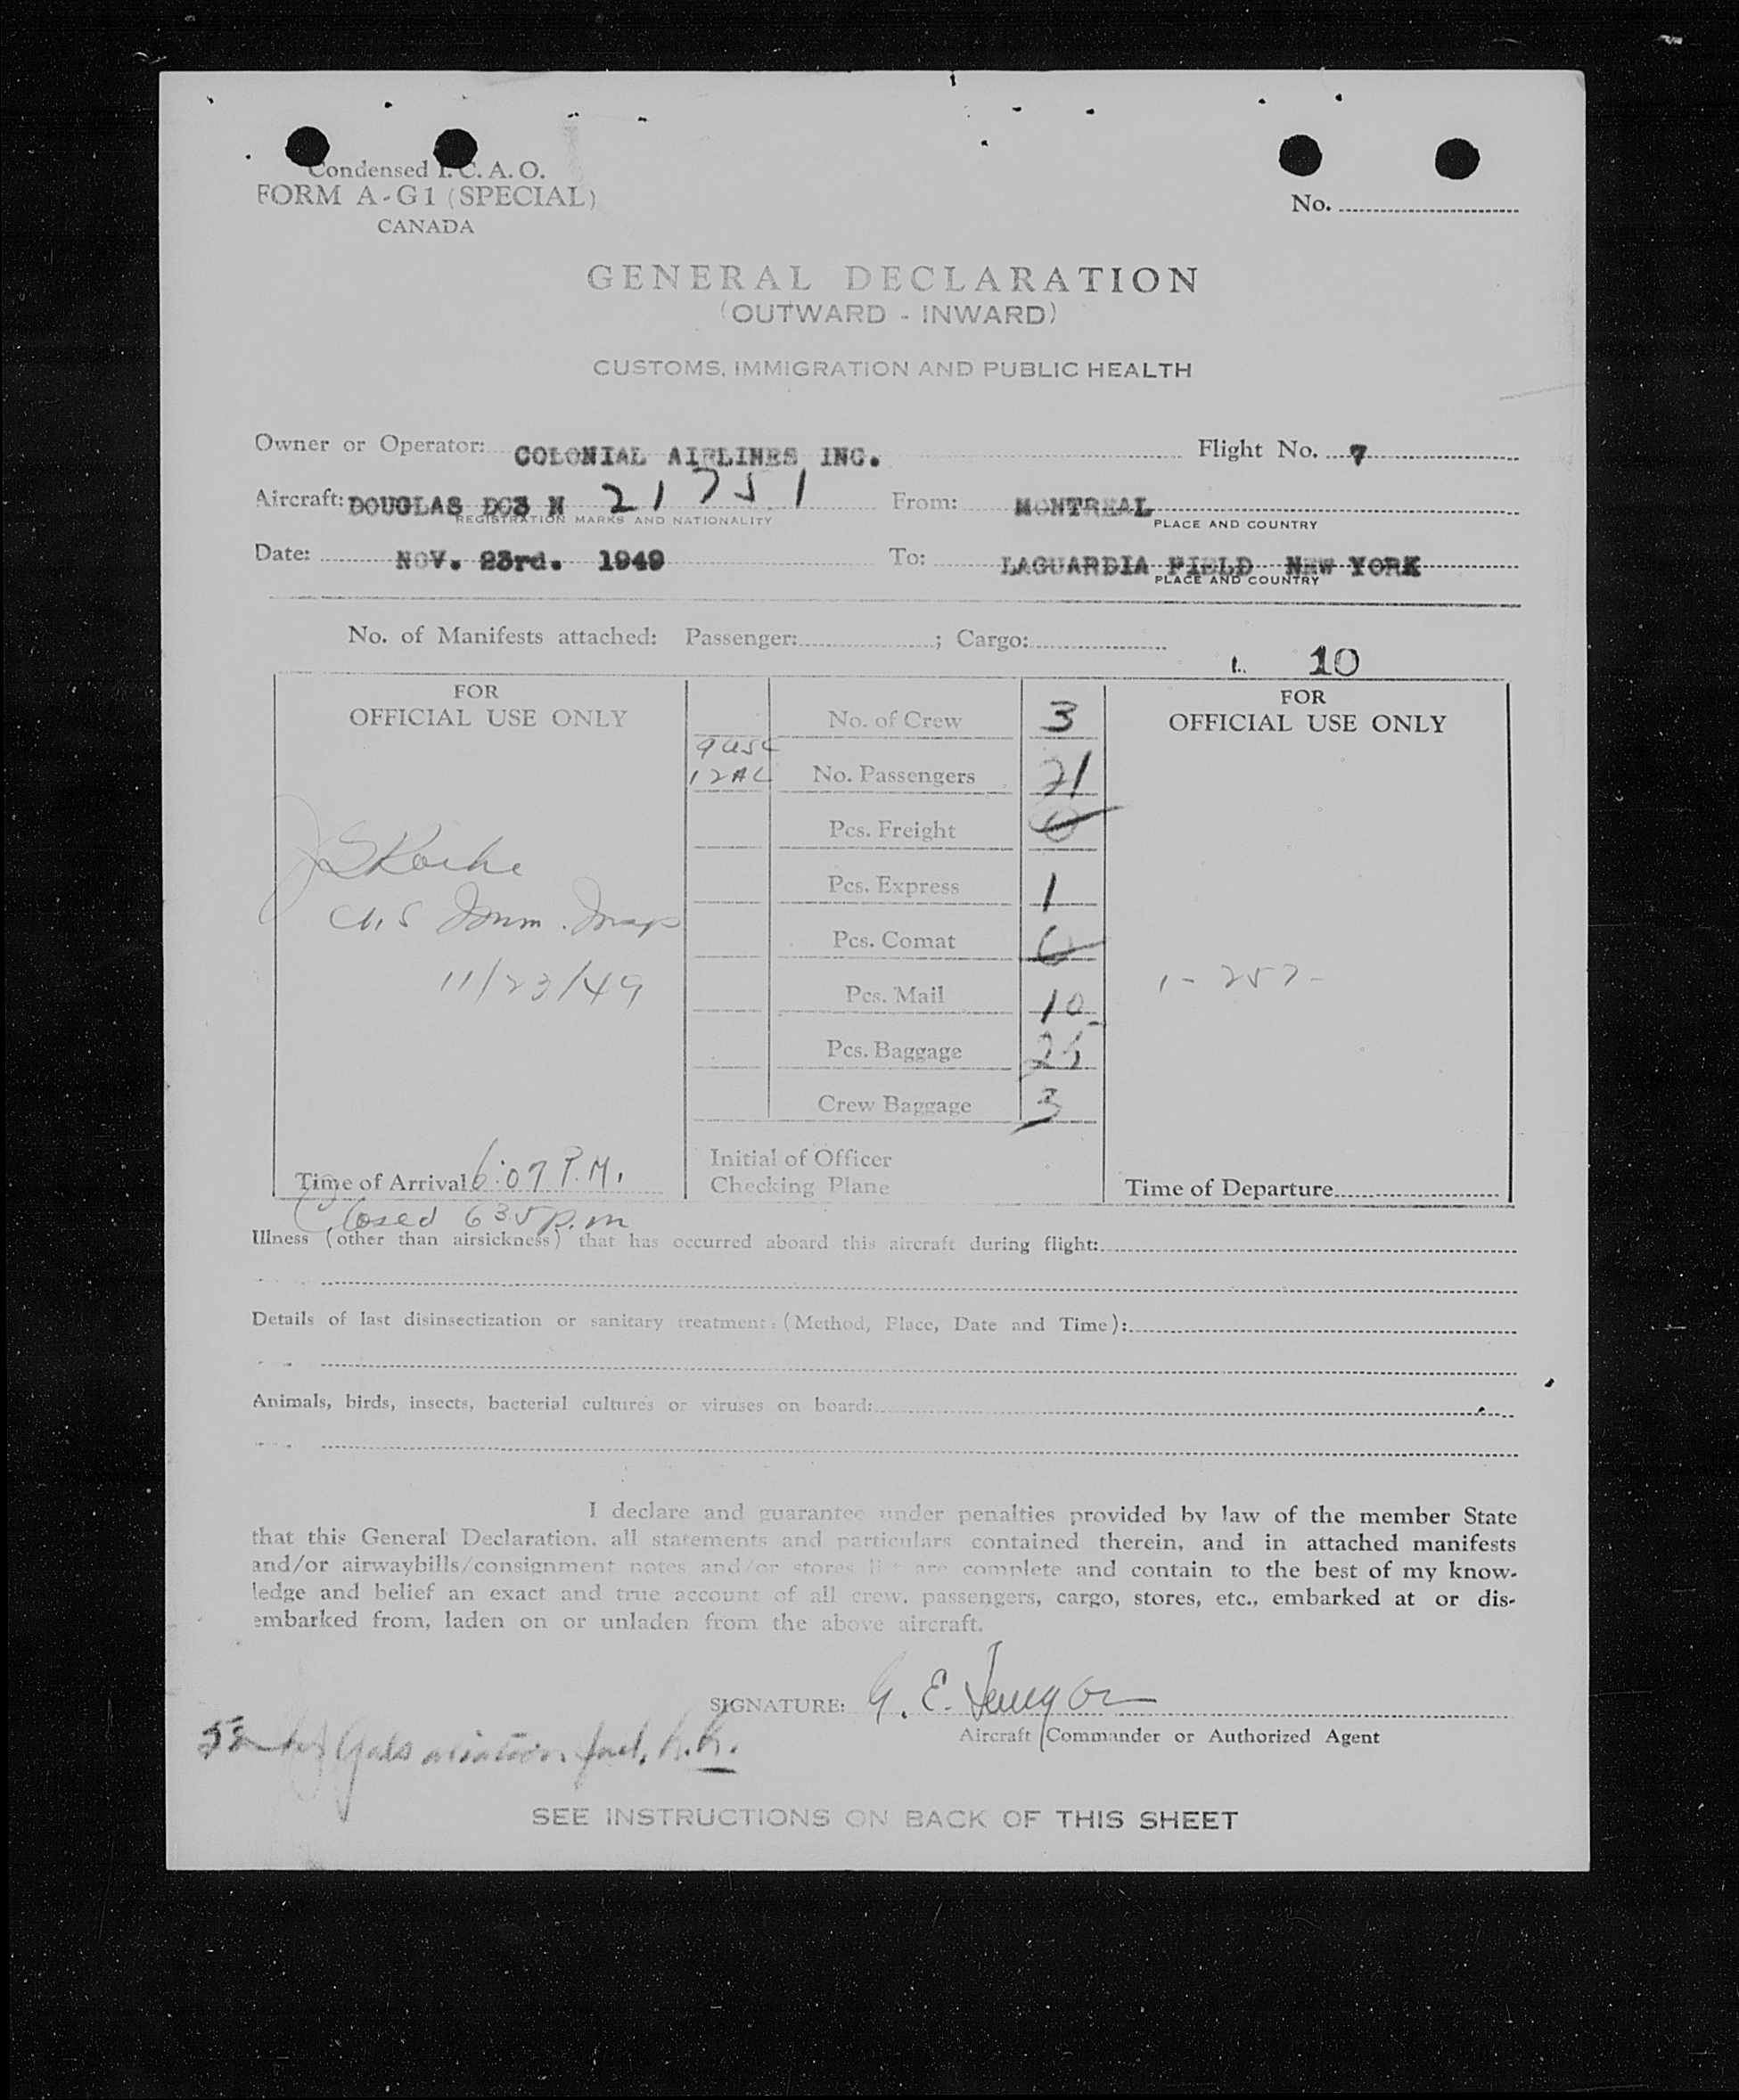 Condensed I. C. A. O.
FORM A-G1 (SPECIAL)
CANADA
No.
GENERAL DECLARATION
(OUTWARD - INWARD)
CUSTOMS, IMMIGRATION AND PUBLIC HEALTH
Owner or Operator: COLONIAL AIRLINES INC. Flight No. 7
Aircraft: DOUGLAS DC3 N 21751 From: MONTREAL
REGISTRATION MARKS AND NATIONALITY PLACE AND COUNTRY
Date: NOV. 23rd. 1949 To: LAGUARDIA FIELD NEW YORK
PLACE AND COUNTRY
No. of Manifests attached: Passenger: ; Cargo:
10
FOR
OFFICIAL USE ONLY
11/23/49
Time of Arrival 6:07 P.M.
Closed 635 p.m
9 USC
12 AL
No. of Crew 3
No. Passengers 21
Pcs. Freight 0
Pcs. Express 1
Pcs. Comat 0
Pcs. Mail 10
Pcs. Baggage 25
Crew Baggage 3
Initial of Officer
Checking Plane
FOR
OFFICIAL USE ONLY
1-257-
Time of Departure
Illness (other than airsickness) that has occurred aboard this aircraft during flight:
Details of last disinsectization or sanitary treatment: (Method, Place, Date and Time):
Animals, birds, insects, bacterial cultures or viruses on board:
I declare and guarantee under penalties provided by law of the member State
that this General Declaration, all statements and particulars contained therein, and in attached manifests
and/or airwaybills/consignment notes and/or stores list are complete and contain to the best of my know-
ledge and belief an exact and true account of all crew, passengers, cargo, stores, etc., embarked at or dis-
embarked from, laden on or unladen from the above aircraft.
SIGNATURE: G. E.
Aircraft Commander or Authorized Agent
Gals aviation fuel.
SEE INSTRUCTIONS ON BACK OF THIS SHEET